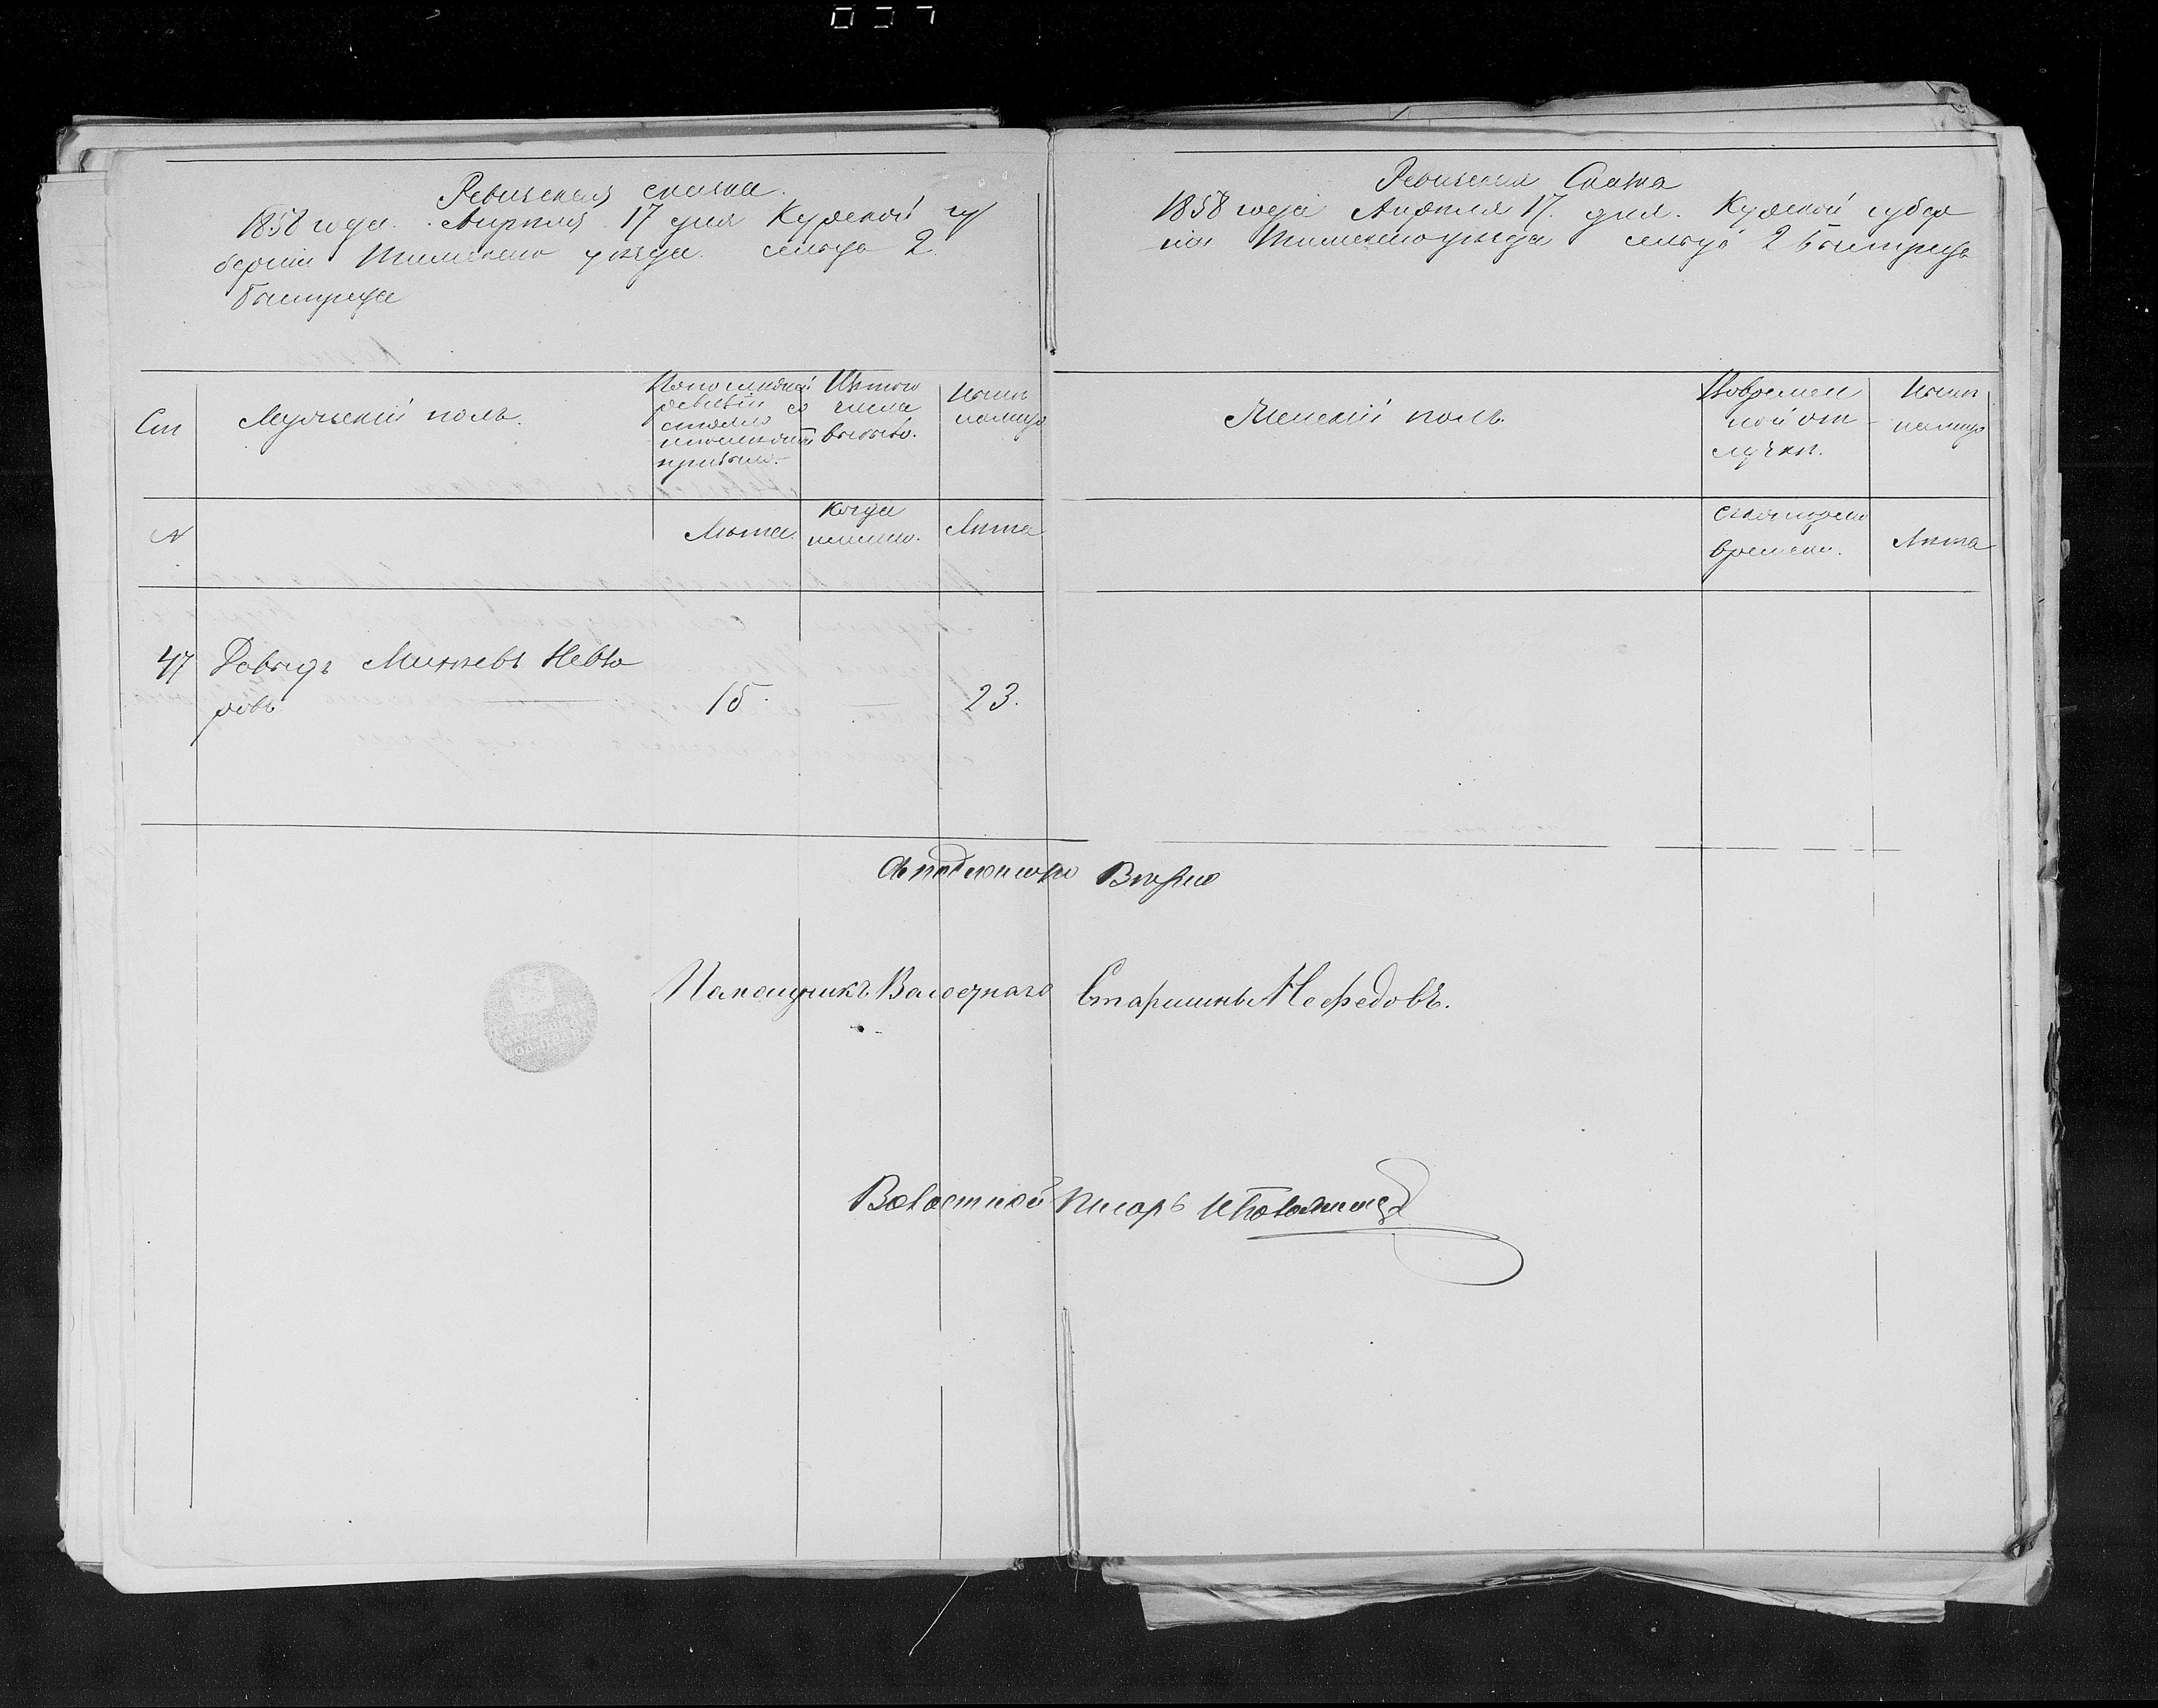 Ревизская сказка.
1858 года. Апреля 17 дня Курской гу
берни Тимскаго уезда. сельца 2.
Быстреца
Ст
Мужеский полъ.
По последней
ревизіи со
стояло
и после того
прибыло.
Изъ того
числа
выбыло.
Ныне
на лицо
N
Лета.
Когда
именно.
Лета
47 Давыдъ Минаевъ Нево
ровъ 15. — 23.
Ревизская Сказка
1858 года Апреля 17. дня. Курской губер
ніи Тимскаго уезда сельца 2 Быстреца
Женскій полъ.
Во времен
ной от
лучки.
Ныне
на лицо
Съ котораго
времени.
Лета
Съ подлиннымъ Верно
Памощникъ Валосznаго Старшины Нефедовъ.
Волостной Писарь